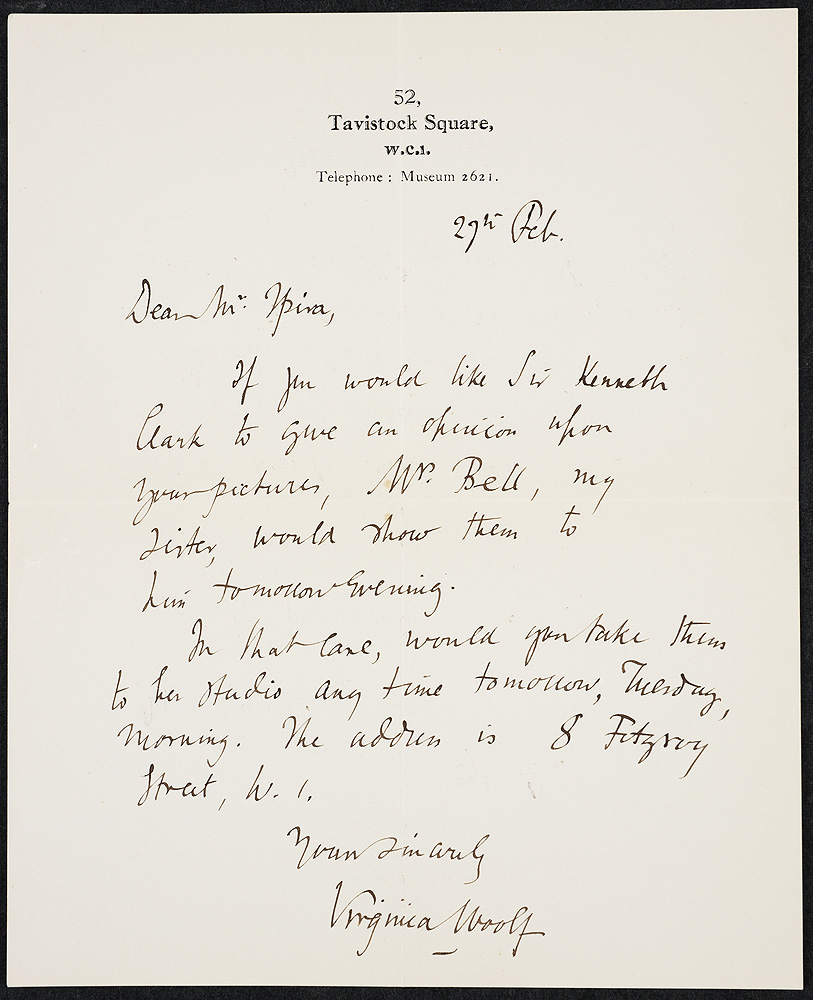 52,
Tavistock Square,
W.C.1.
Telephone : Museum 2621.
27th Feb.
Dear Mr. Spira,
If you would like Sir Kenneth
Clark to give an opinion upon
your pictures, Mrs. Bell, my
sister, would show them to
him tomorrow evening.
In that case, would you take them
to her studio any time tomorrow, Tuesday,
morning. The address is 8 Fitzroy
Street, W. 1.
Yours sincerely
Virginia Woolf